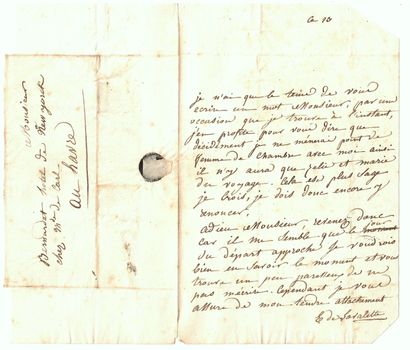 ce 10
je n'ai que le tems de vous
ecrire un mot Monsieur, par un
occasion que je trouve à l'instant,
j'en profite pour vous dire que
décidement je ne menerai point de
femme de chambre avec moi ainsi
il n'y aura que julie et marie
du voyage. Cela est plus sage
je crois, je dois donc encore y
renoncer.
adieu Monsieur, revenez donc
car il me semble que le jour
du départ approche je voudrois
bien en savoir le moment et vous
trouve un peu paresseux de ne
pas m'écrire. Cependant je vous
assure de mon tendre attachement
E de Lavalette
Monsieur
hotel de Newyorck
chez Mr de
au havre